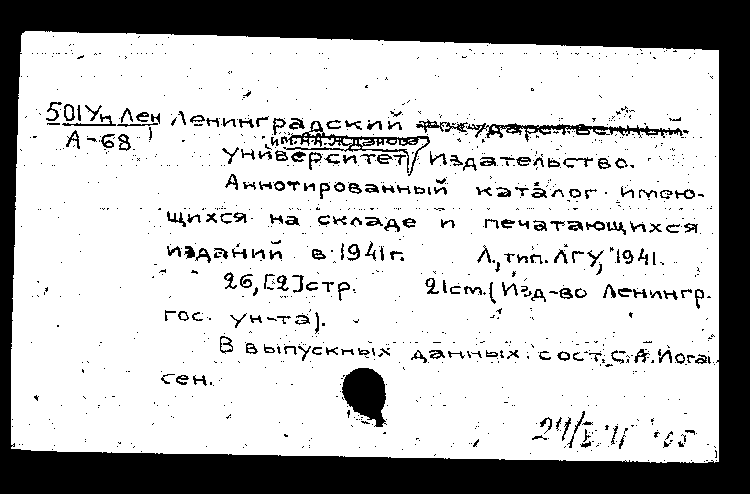 501 Ун Лен Ленинградский государственный
А-68
им. А.А. Жданова
университет / Издательство.
Аннотированный каталог имею-
щихся на складе и печатающихся
изданий в 1941 г. Л., тип. ЛГУ, 1941.
26, [2] стр. 21 cm. (Изд-во Ленингр.
гос. ун-та).
В выпускных данных: сост. С.А. Йоган
сен.